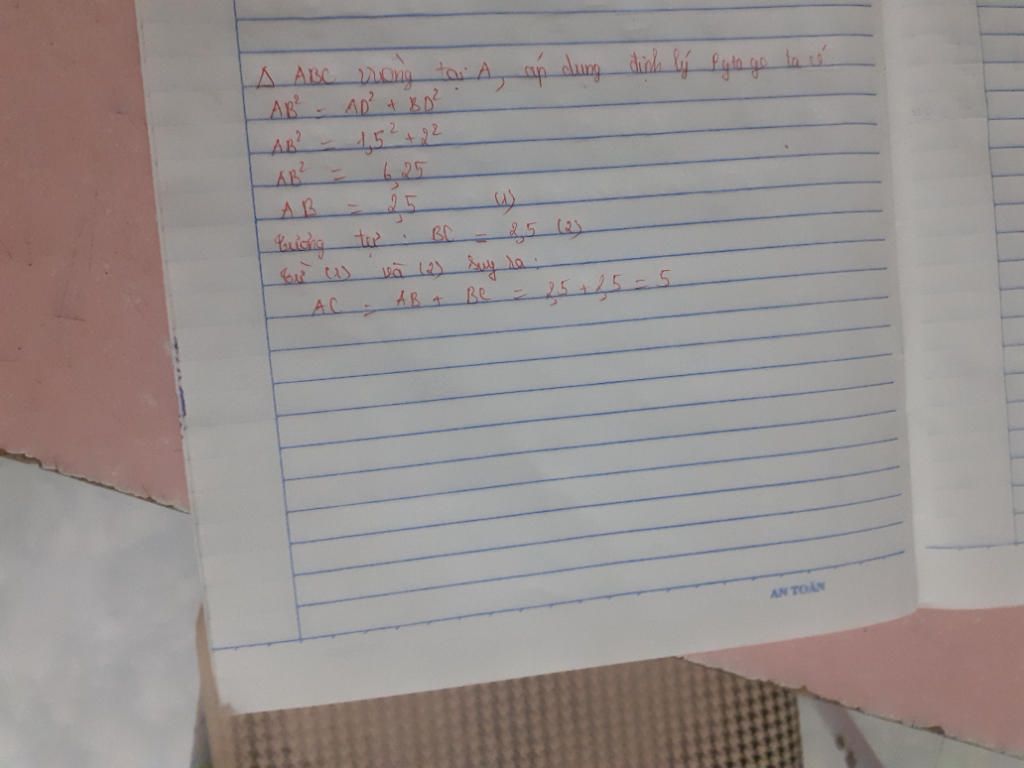 Δ ABC vuông tại A, áp dụng định lý Pytago ta có
AB² = AD² + BD²
AB² = 1,5² + 2²
AB² = 6,25
AB = 2,5 (1)
Tương tự : BC = 2,5 (2)
Từ (1) và (2) suy ra:
AC = AB + BC = 2,5 + 2,5 = 5
AN TOÀN